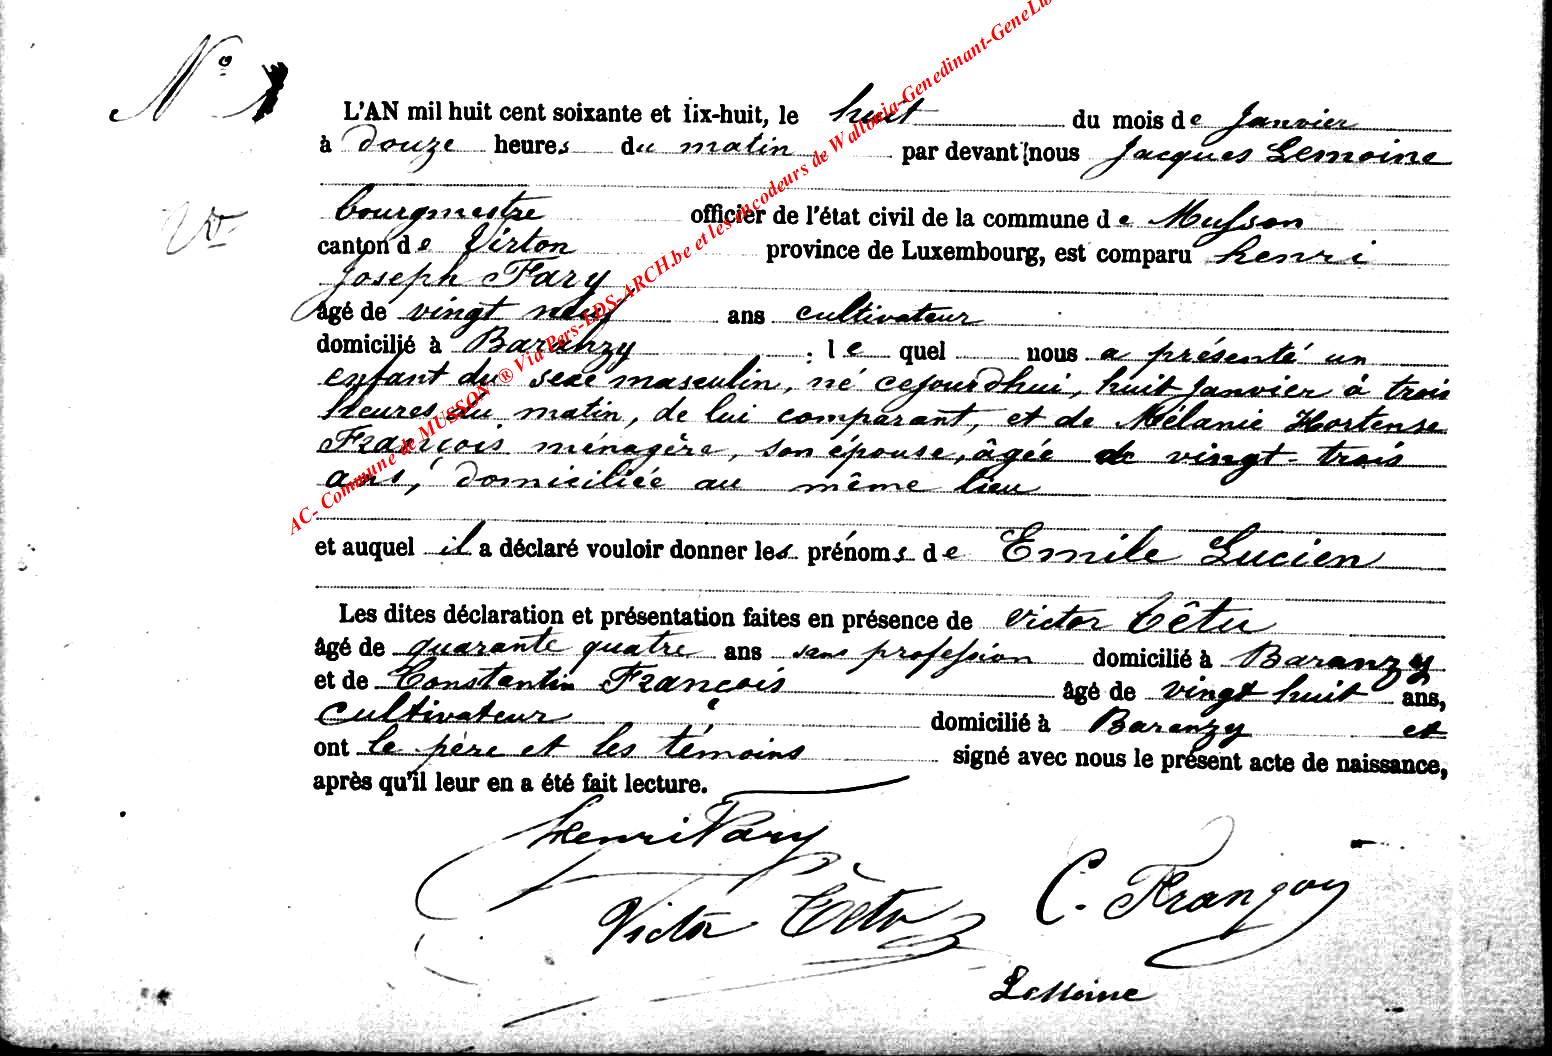 N° 1
L'AN mil huit cent soixante et dix-huit, le huit du mois de Janvier
à douze heures du matin par devant nous Jacques Lemoine
bourgmestre officier de l'état civil de la commune de Musson
canton de Virton province de Luxembourg, est comparu henri
Joseph Fary
âgé de vingt neuf ans cultivateur
domicilié à Baranzy : le quel nous a présenté un
enfant du sexe masculin, né cejourdhui, huit Janvier à trois
heures du matin, de lui comparant, et de Mélanie Hortense
François ménagère, son épouse, âgée de vingt-trois
ans, domiciliée au même lieu
et auquel il a déclaré vouloir donner les prénoms de Emile Lucien
Les dites déclaration et présentation faites en présence de Victor Têtu
âgé de quarante quatre ans sans profession domicilié à Baranzy
et de Constantin François âgé de vingt huit ans,
cultivateur domicilié à Baranzy et
ont le père et les témoins signé avec nous le présent acte de naissance,
après qu'il leur en a été fait lecture.
henri Fary
Victor Têtu
C. François
Lemoine
AC- Commune de MUSSON ® Via Pers-LDS-ARCH.be et les encodeurs de Wallonia-Genedinant-GeneLu